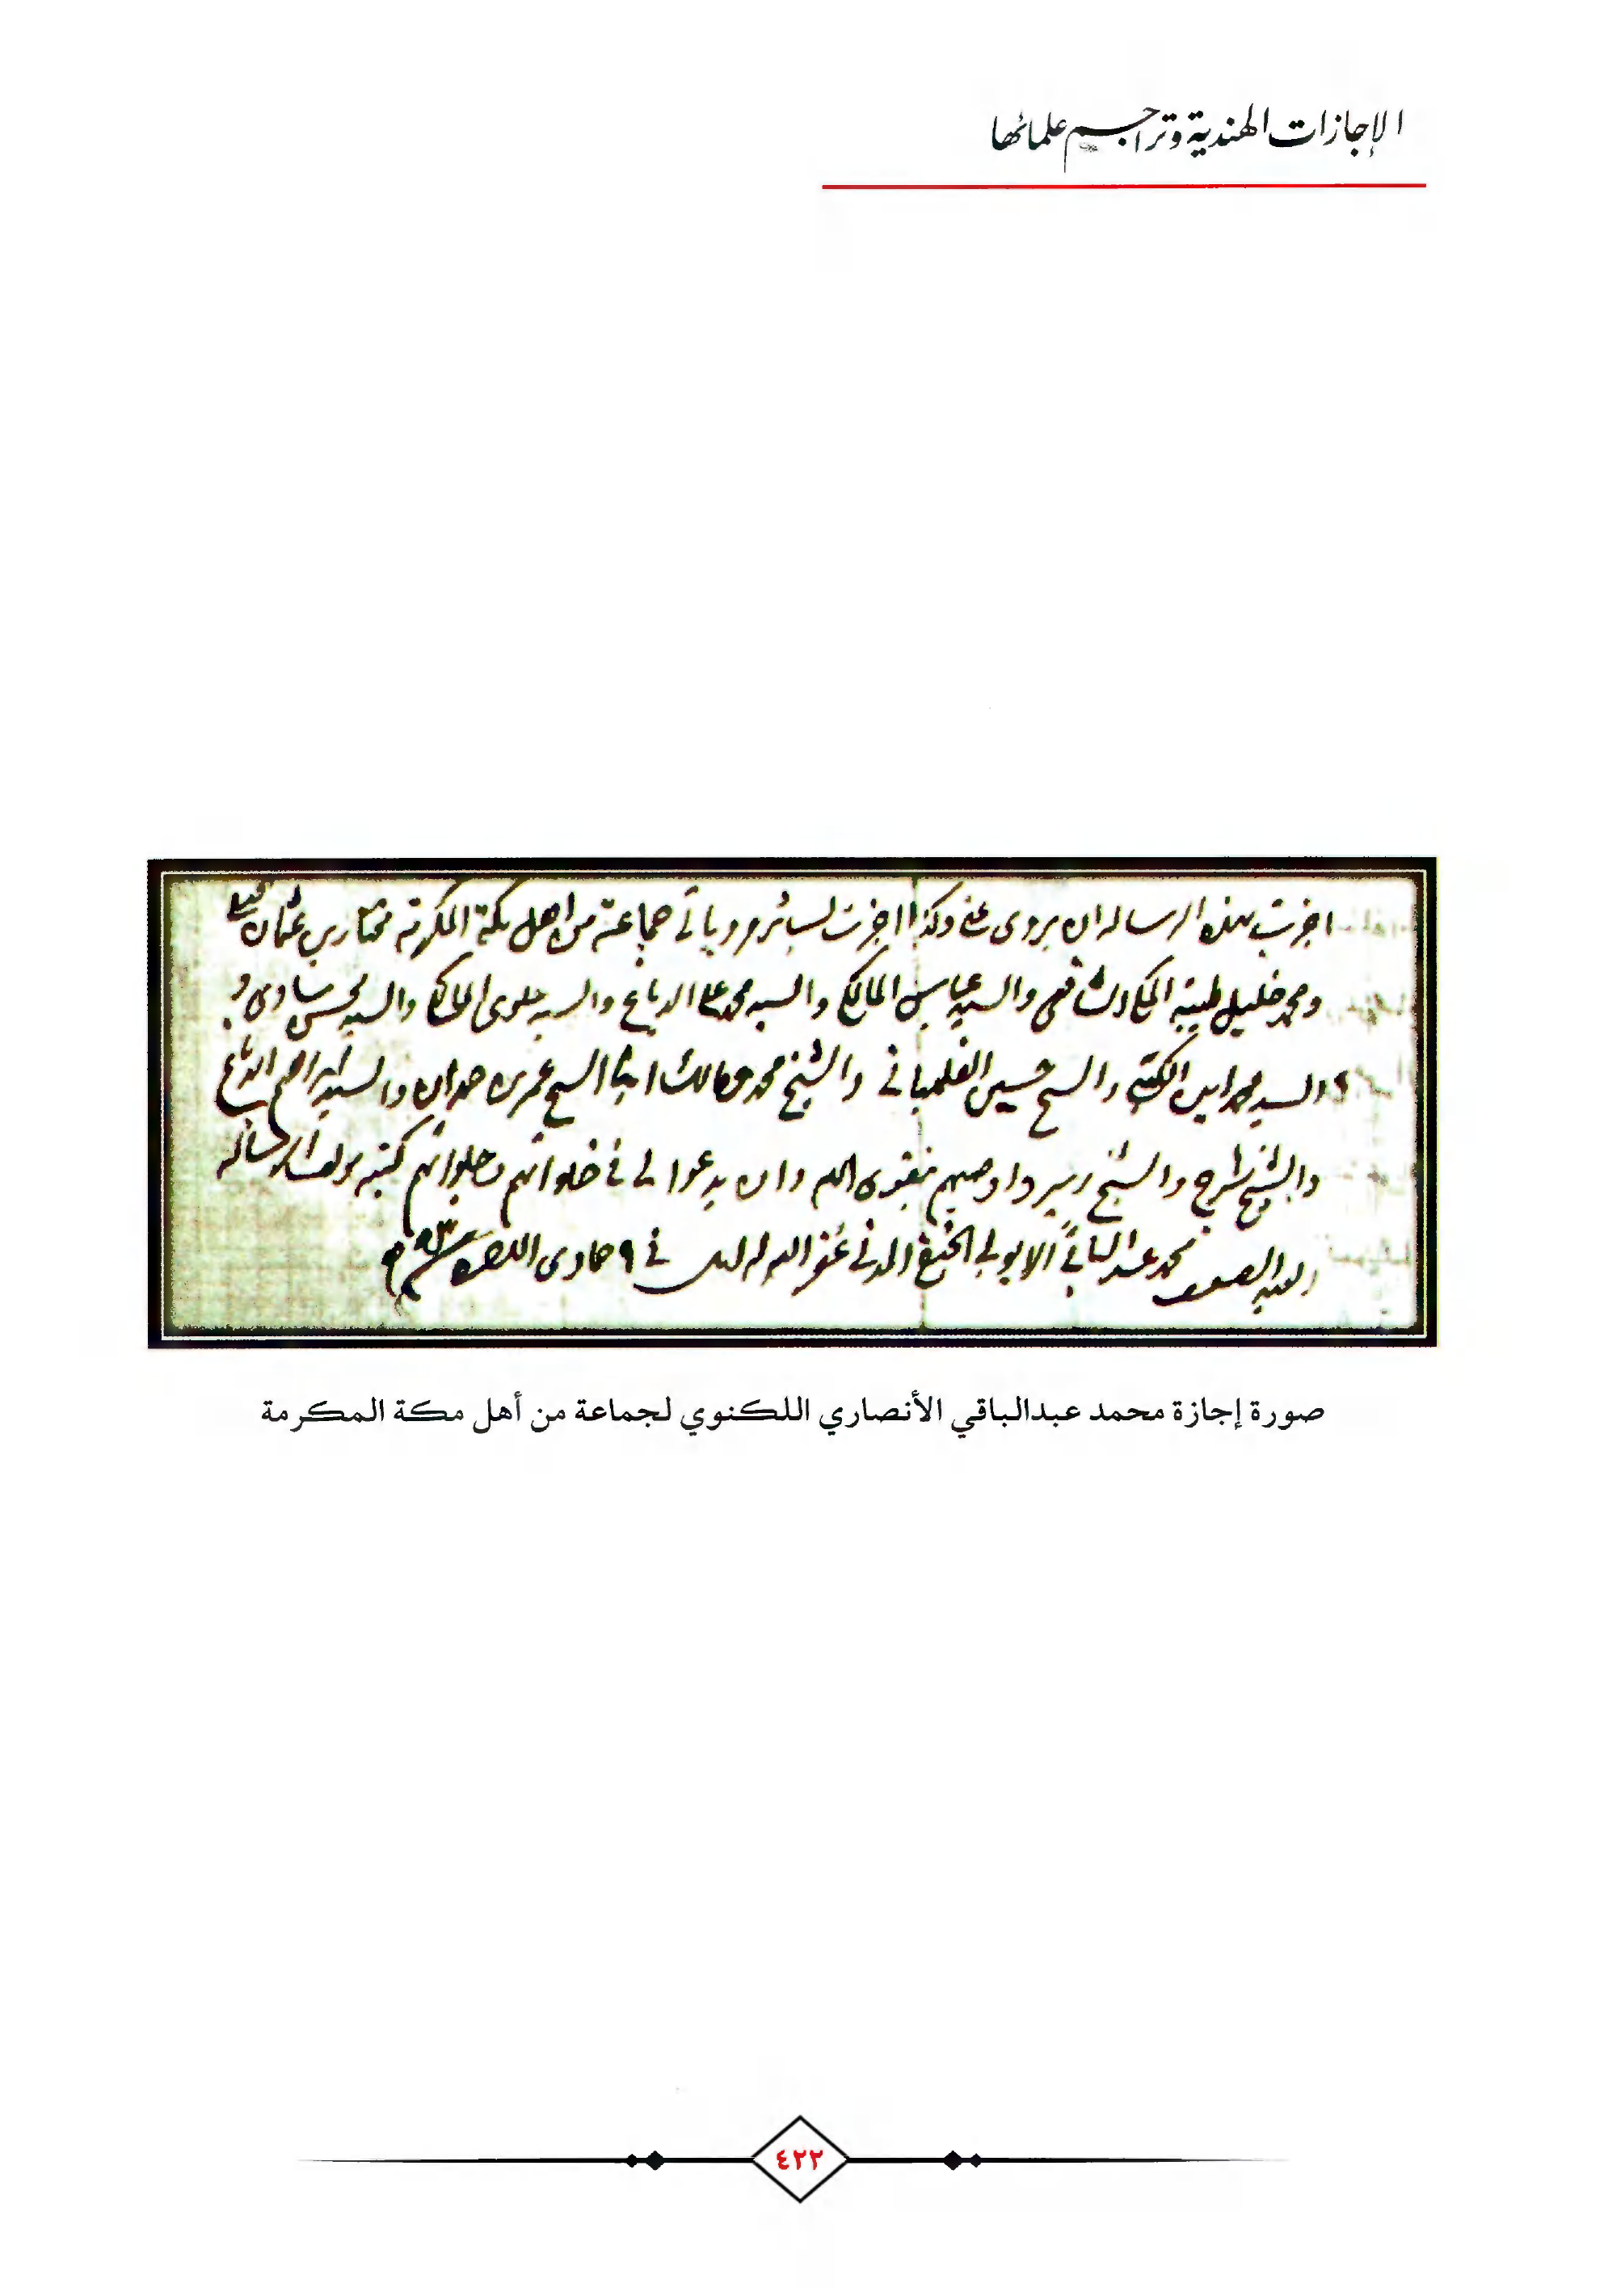 الإجازات الهندية وتراجم علمائها
اجزت بهذه الرساله ان يروى عني وكذا اجزت لسائر مروياتي جماعة من اهل مكة المكرمة مختار بن عثمان
ومحمد خليل طيبة المكي الشافعي والسيد عباس المالكي والسيد محمد علي الدباغ والسيد علوى المالكي والسيد محسن مساوى و
والسيد محمد امين الكتبي والشيخ حسين الفلمباني والشيخ محمد الشيخ عمر حمدان والسيد ابراهيم الدباغ
والشيخ والشيخ زبير واوصيهم بتقوى الله وان يدعوا لي في خلواتهم وجلواتهم كتبه مولف الرساله
العبد محمد عبد الباقي الايوبي الحنفي المدني غفر الله له في ٩ جمادى
صورة إجازة محمد عبدالباقي الأنصاري اللكنوي لجماعة من أهل مكة المكرمة
٤٢٢